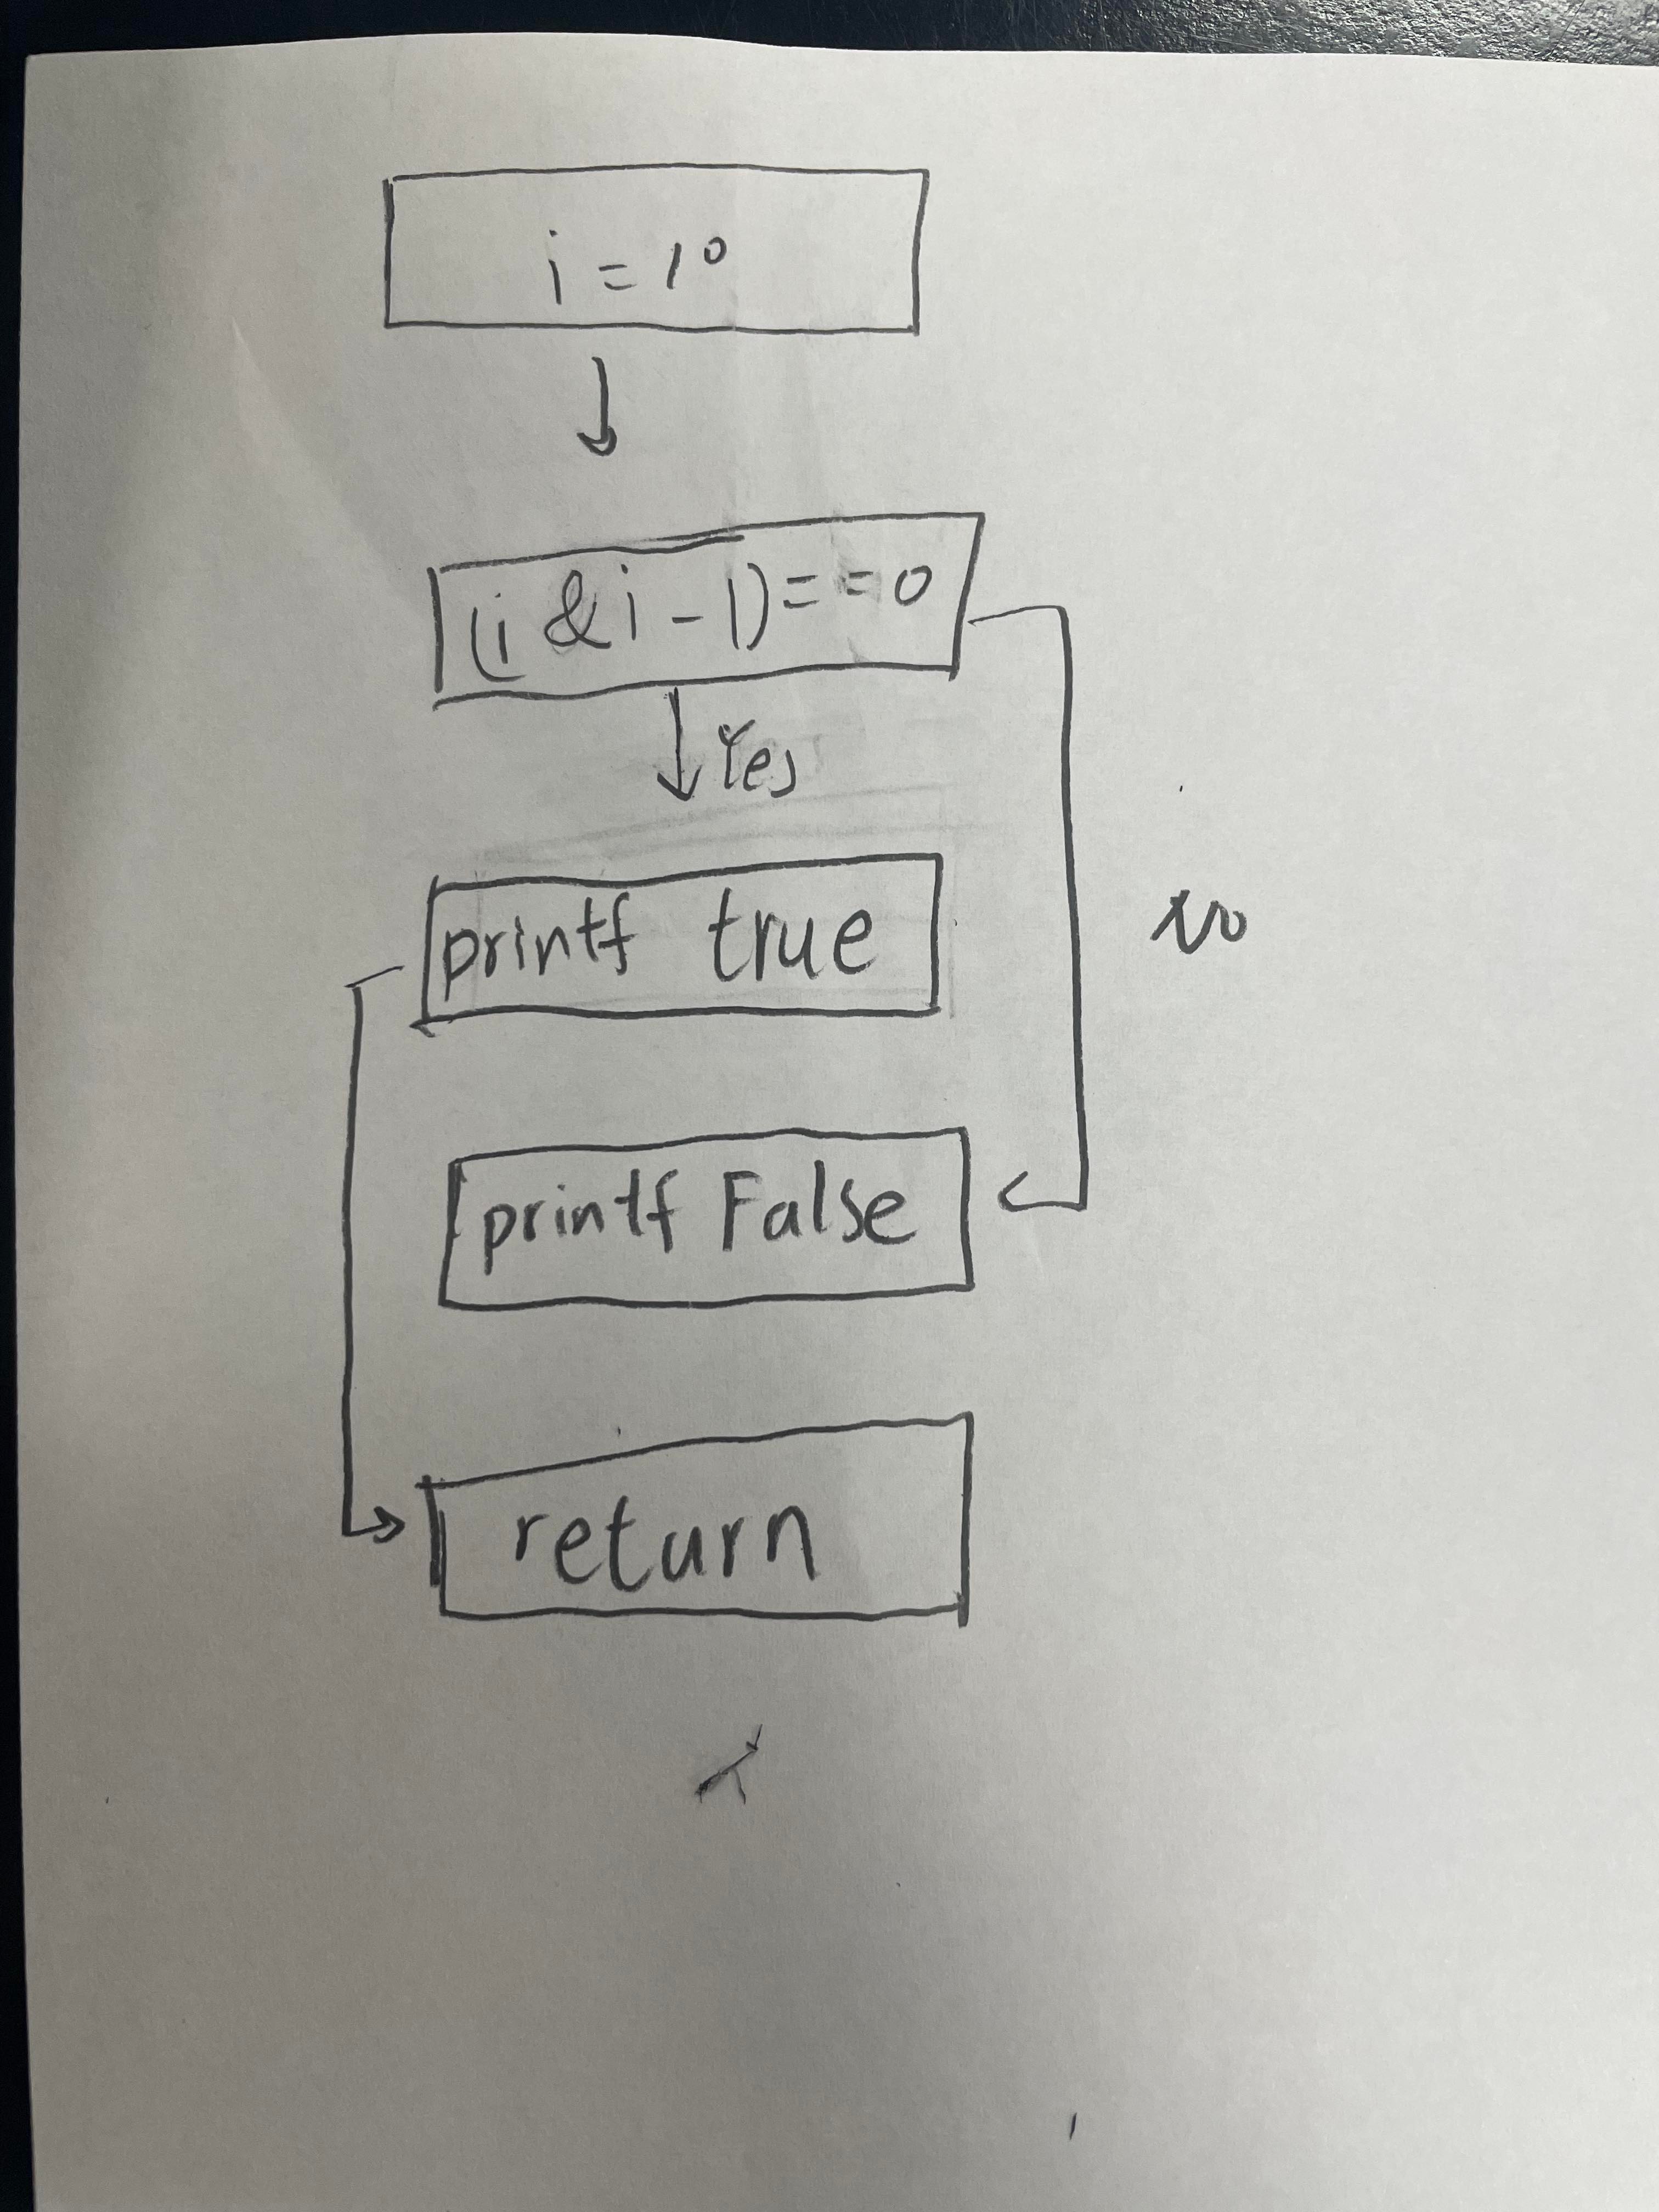 i = 10
(i & i - 1) = = 0
Yes
printf true
No
printf False
return